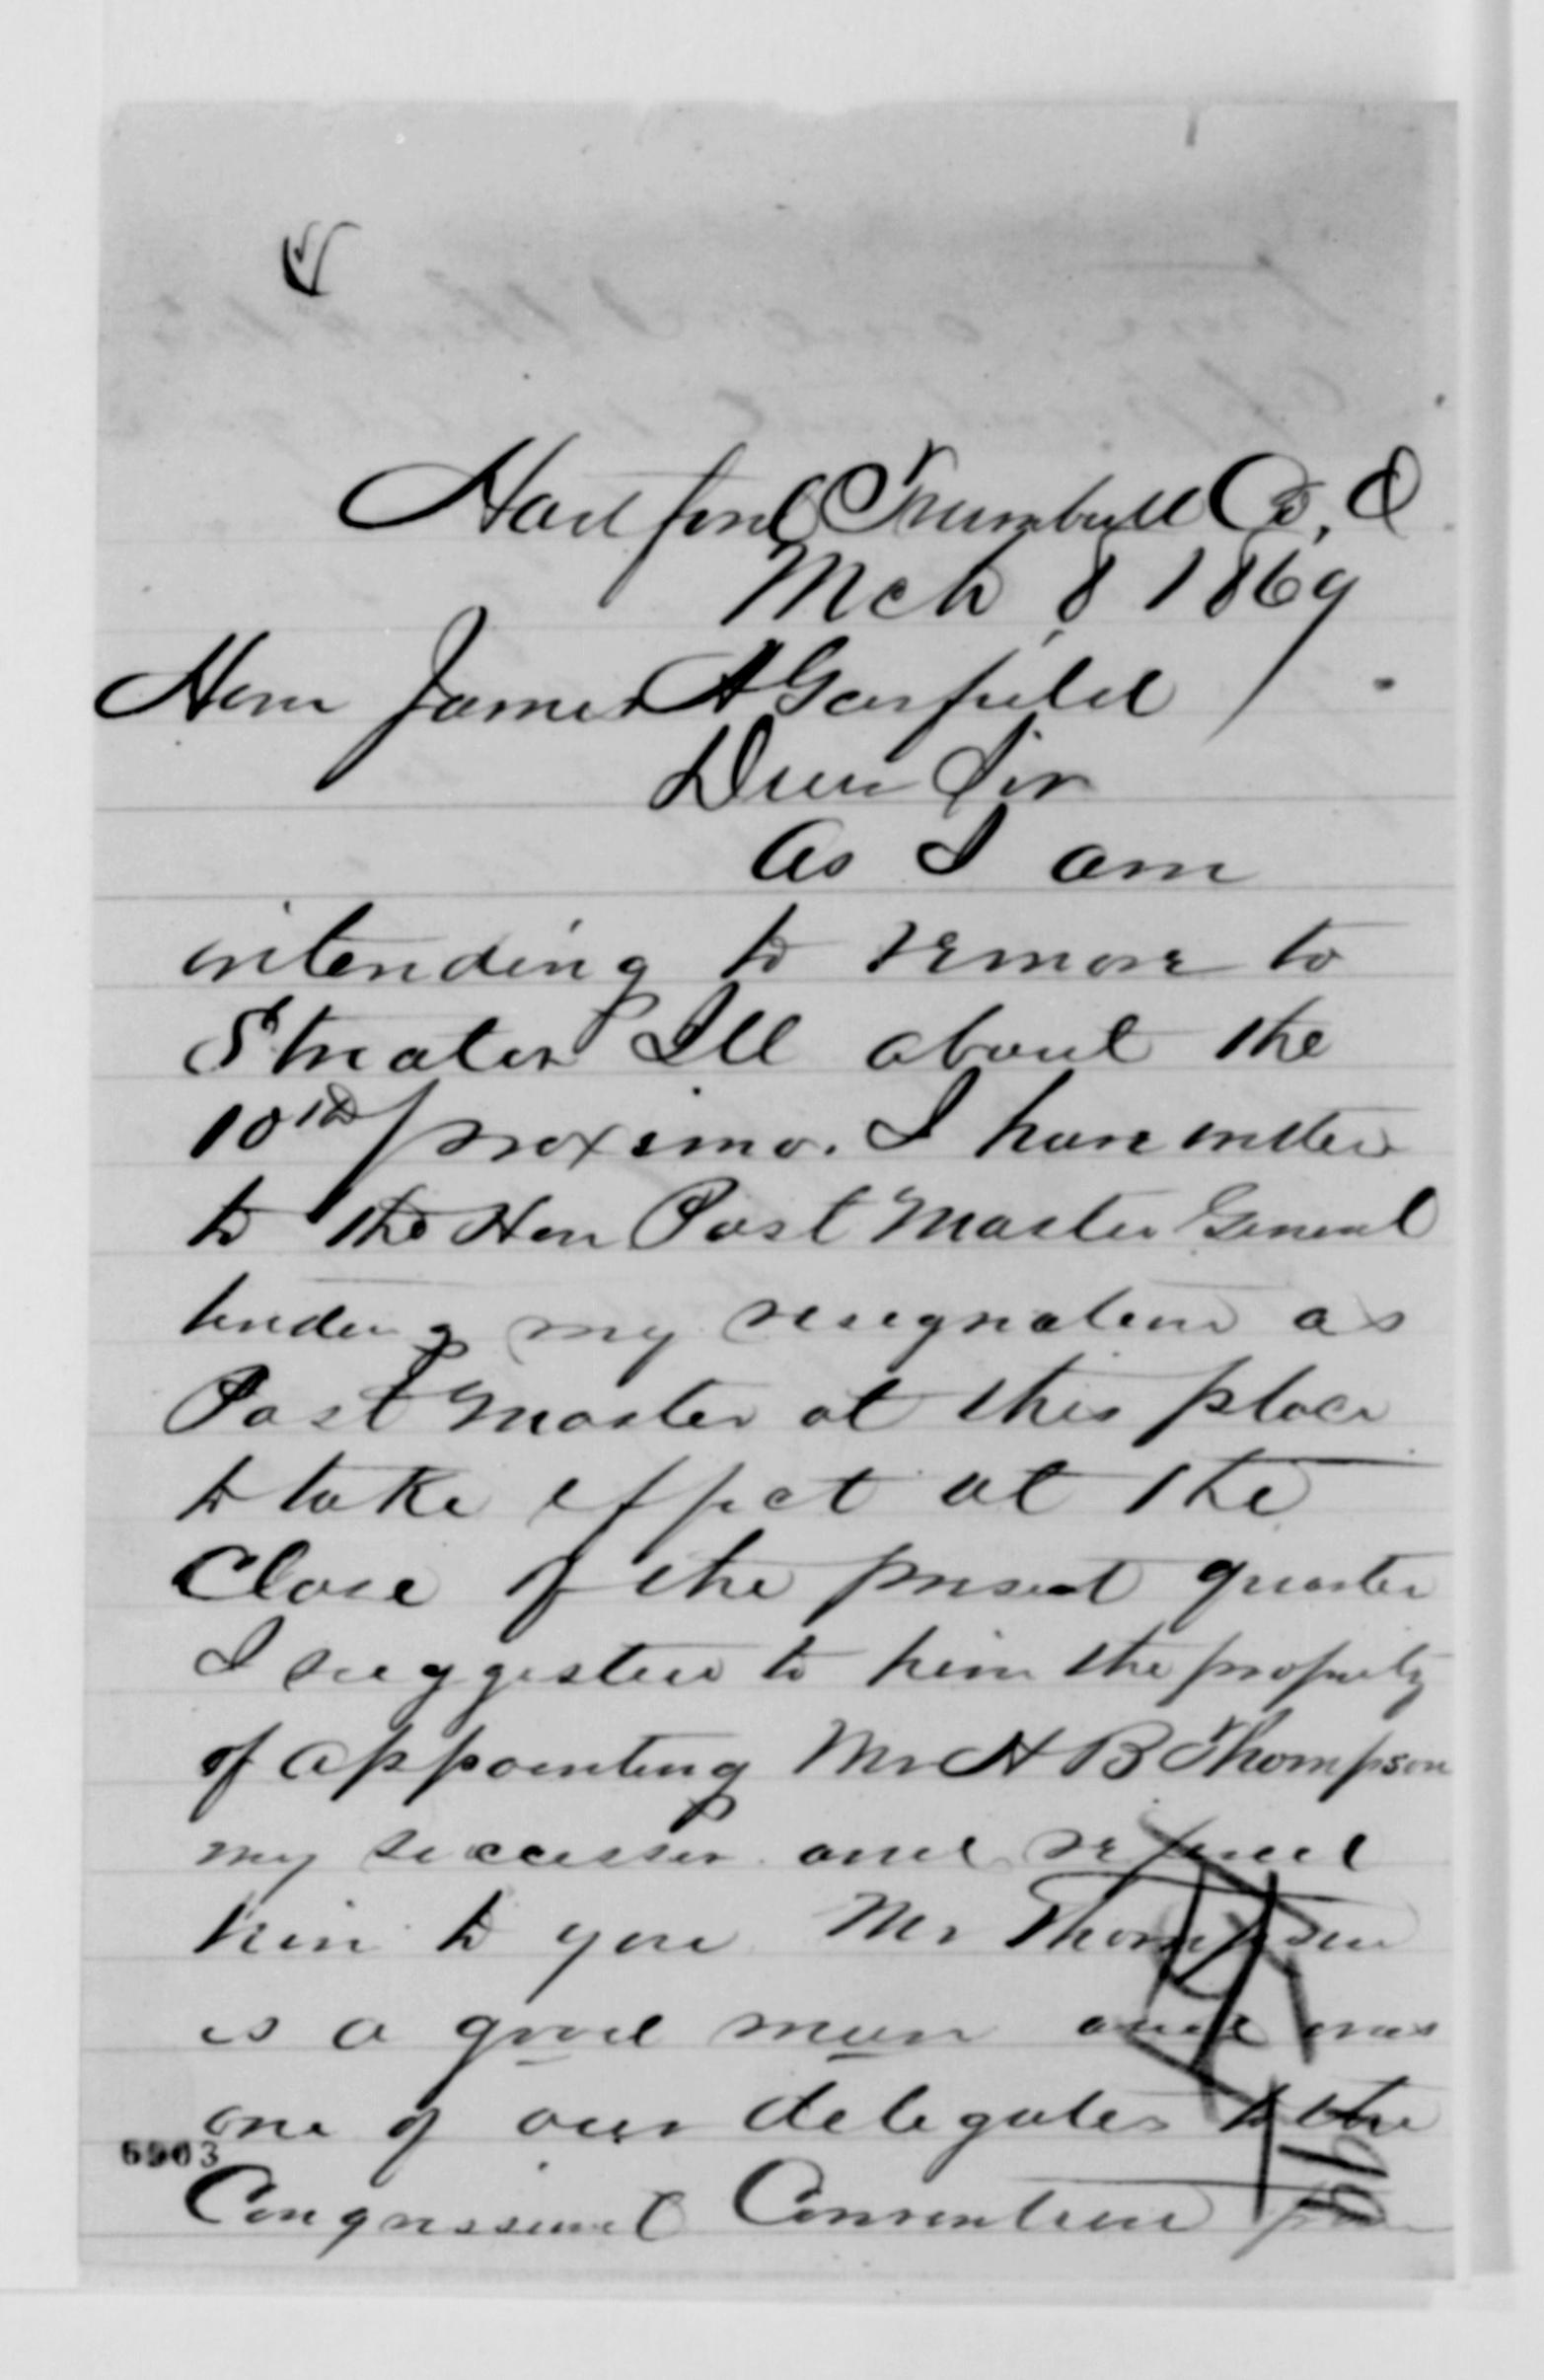 Hartford Trumbull Co, O
Mch 8 1869
Hon James A Garfield
Dear Sir
As I am
intending to remove to
Streator Ill about the
10th proximo. I have written
to the Hon Post Master General
tendering my resignation as
Post Master at this place
to take effect at the
Close of the present quarter
I suggested to him the propriety
of appointing Mr H B Thompson
my successor and refered
him to you Mr Thompson
is a good man and was
one of our delegates to the
6903
Congressional Convention from